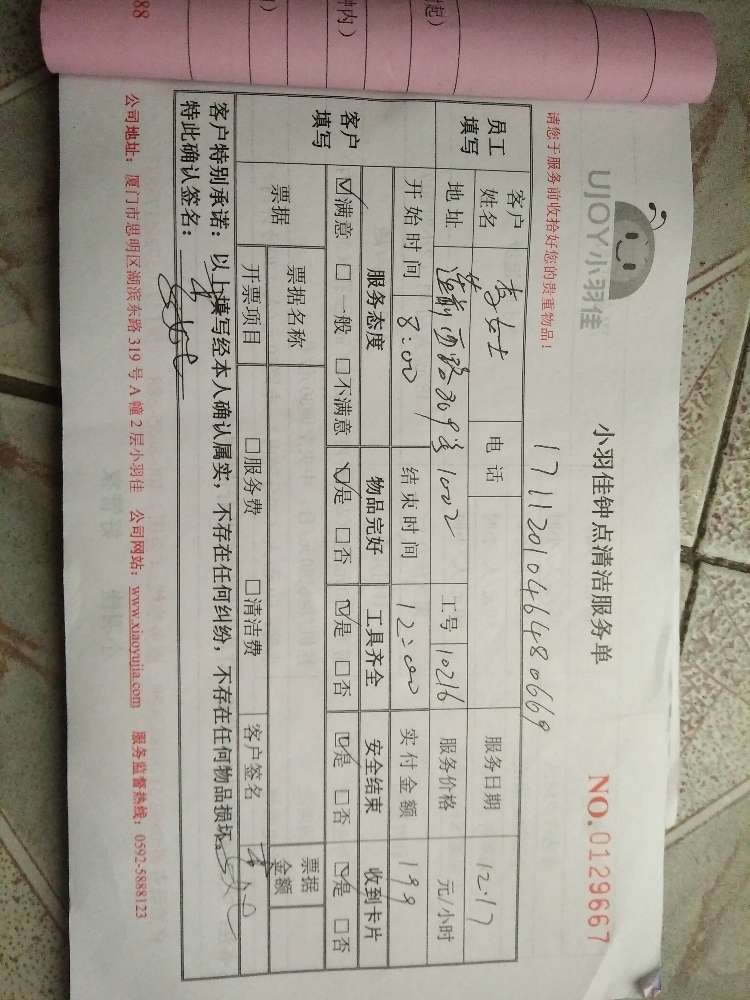 起)
钟内)
88
UJOY小羽佳
小羽佳钟点清洁服务单
NO.0129667
请您于服务前收拾好您的贵重物品！
171120104648066​9
员工填写
客户姓名
女士
电话
服务日期
12.17
地址
莲前西路309号1002
工号
10216
服务价格
元/小时
开始时间
8:00
结束时间
12:00
实付金额
199
客户填写
服务态度
物品完好
工具齐全
安全结束
收到卡片
☑满意 □一般 □不满意
☑是 □否
☑是 □否
☑是 □否
☑是 □否
票据
票据名称
票据金额
开票项目
□服务费 □清洁费
客户签名
客户特别承诺：以上填写经本人确认属实，不存在任何纠纷，不存在任何物品损坏。
特此确认签名：
公司地址：厦门市思明区湖滨东路 319 号 A 幢 2 层小羽佳 公司网站：www.xiaoyujia.com 服务监督热线：0592-5888123